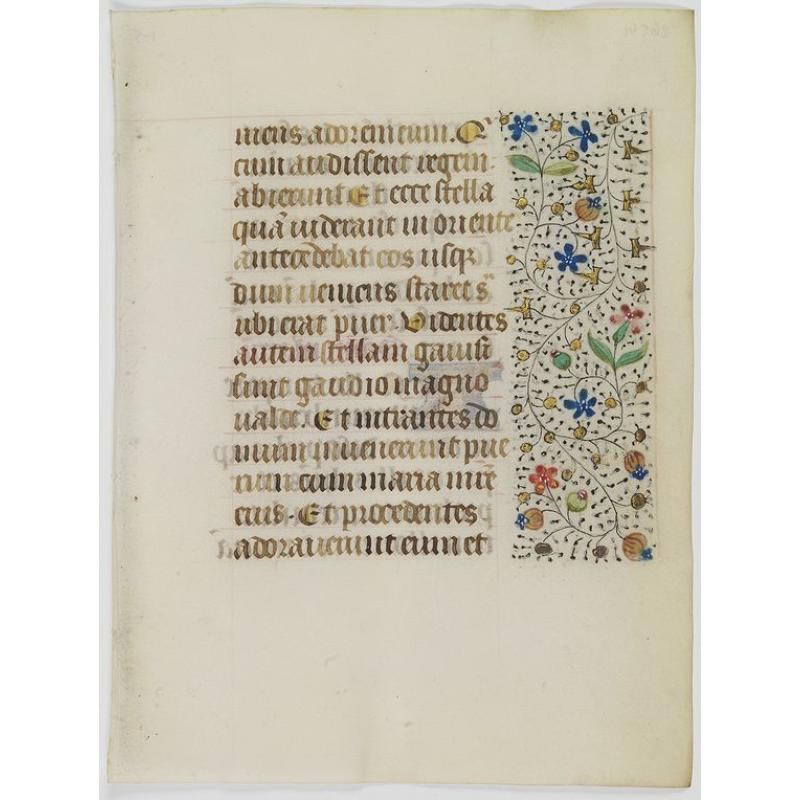 niens adorem eum. Q̄
cum audissent regem.
abierunt Et ecce stella
quā viderant in oriente
antecedebat eos usq̨
dum ueniens staret s̄
ubi erat puer. Videntes
autem stellam gauisi
sunt gaudio magno
ualde. Et intrantes do
mum inuenerunt pue
rum cum maria mr̄e
eius. Et procedentes
adorauerunt eum et